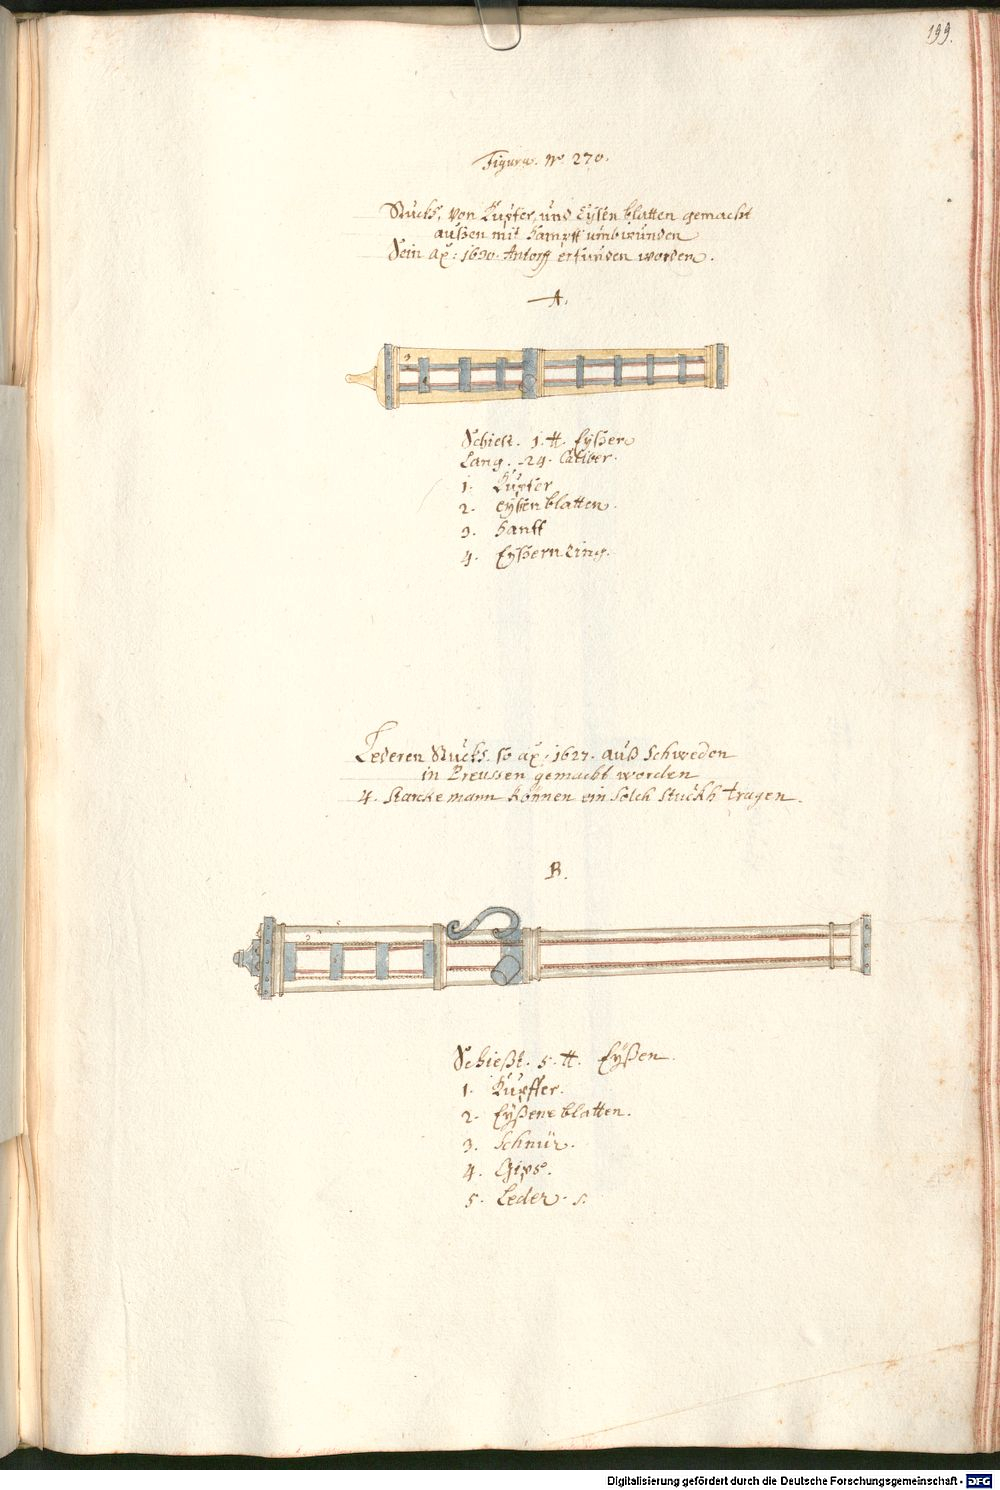 199.
Figura. No 270.
Stuckh, von Kupfer, und Eysen blatten gemacht
außen mit Hampff umbwunden
Sein ao: 1630. Antorff erfunden worden.
A.
3
Schiest. 1. ℔. Eyßen
Lang. 24. Caliber.
1. Kupfer
2. Eysen blatten.
3. Hanff
4. Eyßern Ring.
Lederen Stuckh. so ao. 1627. auß Schweden
in Preussen gemacht worden
4. Starcke mann können ein solch Stuckh tragen.
B.
2 5
Schießt. 5. ℔. Eyßen.
1. Kupffer.
2. Eyßene blatten.
3. Schnür.
4. Gips.
5. Leder.
Digitalisierung gefördert durch die Deutsche Forschungsgemeinschaft - DFG